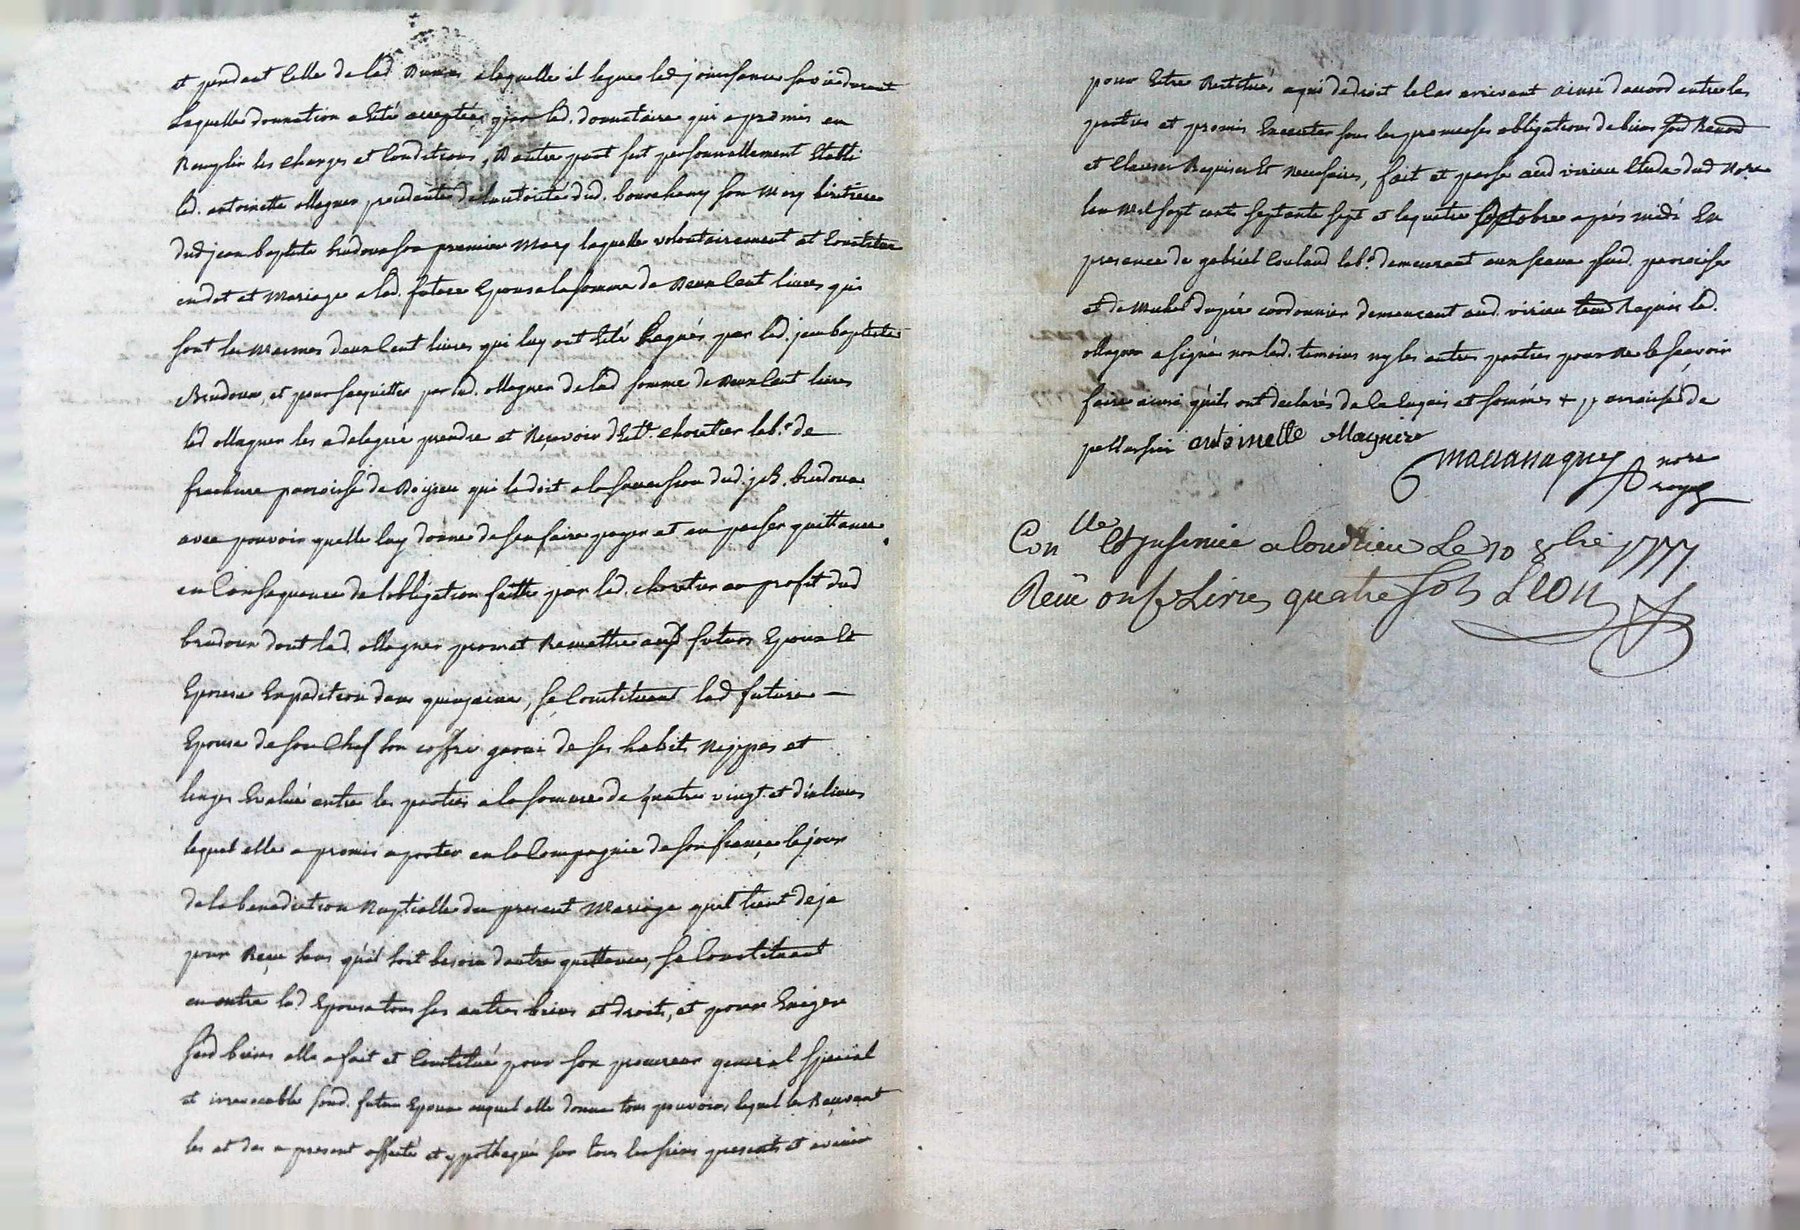 et pendant celle de lad. Dumas a laquelle il legue lad. jouissance sa vie durant
laquelle donnation a eté acceptée par led. donnataire qui a promis en
Remplir les charges et Conditions, D'autre part sest personnellement Etabli
lad. antoinette Magnin procedante de l'autorité dud. bouvchany son Mary heritiere
dud jean baptiste brudoux son premier Mary laquelle volontairement at Constitue
en dot et Mariage a lad. future Epouse la somme de Deux Cent livres qui
sont les Mesmes deux Cent livres qui luy ont Eté Legués par led. jean baptiste
Brudoux, et pour sacquitter par lad. Magnin de lad somme de Deux Cent livres
lad Magnin les a delegué prendre et Reçevoir d'Ett. chevrier lab.r de
paroisse de Roisieu qui la doit a la succession dud. j.B. brudoux
avec pouvoir quelle luy donne de sen faire payer et en passer quittance
en Consequence de lobligation faitte par led. chevrier au profit dud
brudoux dont lad. Magnin promet Remettre aux futurs Epoux et
Epouse Expedition dans quinzaine, se Constituant lad future —
Epouse de son Chef son coffre garni de ses habits Nippes et
linges Evalué entre les parties a la somme de quatre vingt et dix livres
lequel elle a promis apporter en la Compagnie de son fiancé le jour
de la benediction Nuptialle du present Mariage qu'il tient deja
pour Reçu sans qu'il soit besoin dautre quittance, se Constituant
en outre lad Epouse tous ses autres biens et droits, et pour Exiger
sesd biens elle a fait et Constitué pour son procureur general special
et irrevocable sond. futur Epoux auquel elle donne tous pouvoirs lequel les Recevant
les at des a present affecté et ypothequé sur tous les siens presents et avenir
pour Estre Restitués a qui de droit le Cas arrivant ainsi d'accord entre les
parties et promis Executer sous les promesses obligations de biens
et Clauses Requises Et Necessaires, fait et passé aud virieu Etude dud Nore
lan Mil sept cents septante sept et le quatre octobre après midi En
presence de gabriel Coulaud lab.r demeurant aud. paroisse
et de Michel Dupré cordonnier demeurant aud. virieu Requis lad.
Magnin a signé non led. temoins ny les autres parties pour Ne le sçavoir
faire ainsi qu'ils ont declarés de Ce Enquis et sommés + paroisse de
pellussin antoinette Magnin
nore
royal
Con lle Et Insinué a Condrieu Le 10 8bre 1777
Reçu onze Livres quatre sols Léon